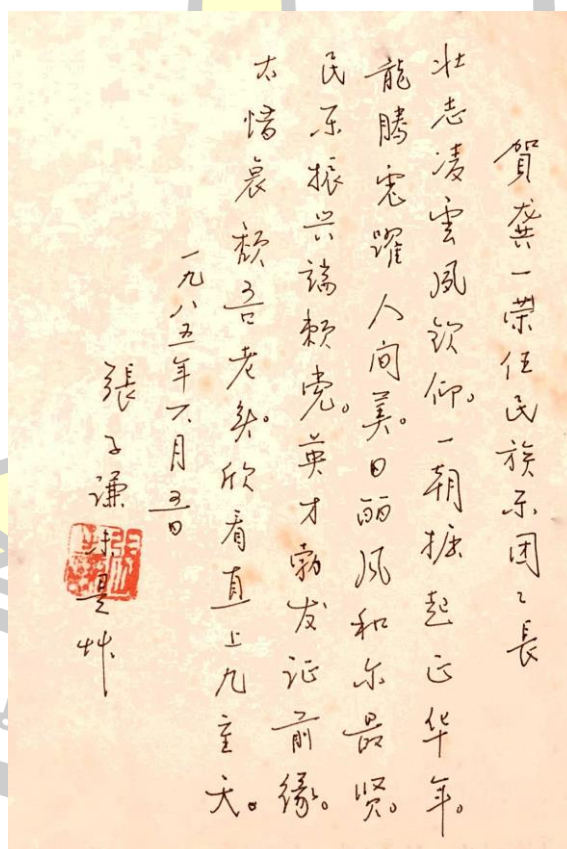 賀龚一荣任民族乐团々長
壮志凌雲夙欽仰。一朝掘起正华年。
龍腾虎躍人间美。日丽风和尔最贤。
民乐振兴端赖党。英才勃发证前缘。
太惜衰颓吾老矣。欣看直上九重天。
一九八五年六月五日
張子谦未是艸